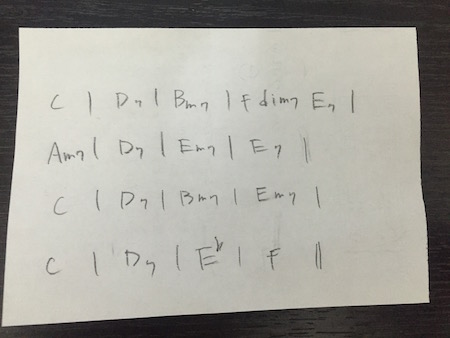 C | D7 | Bm7 | Fdim7 E7 |
Am7 | D7 | Em7 | E7 ||
C | D7 | Bm7 | Em7 |
C | D7 | E♭ | F ||